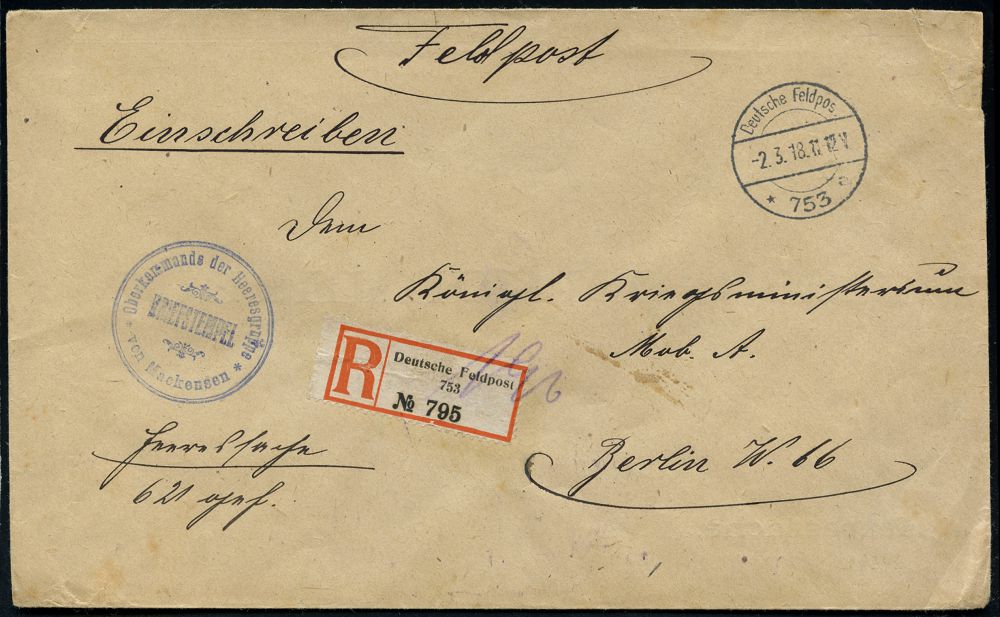 Feldpost
Einschreiben
Deutsche Feldpos
-2.3.18.11-12V
* 753 a
Dem
Königl. Kriegsministerium
Mob. A.
Berlin W. 66
Oberkommando der Heeresgruppe
BRIEFSTEMPEL
* von Mackensen *
R
Deutsche Feldpost
753
№ 795
Heeressache
621 geh.